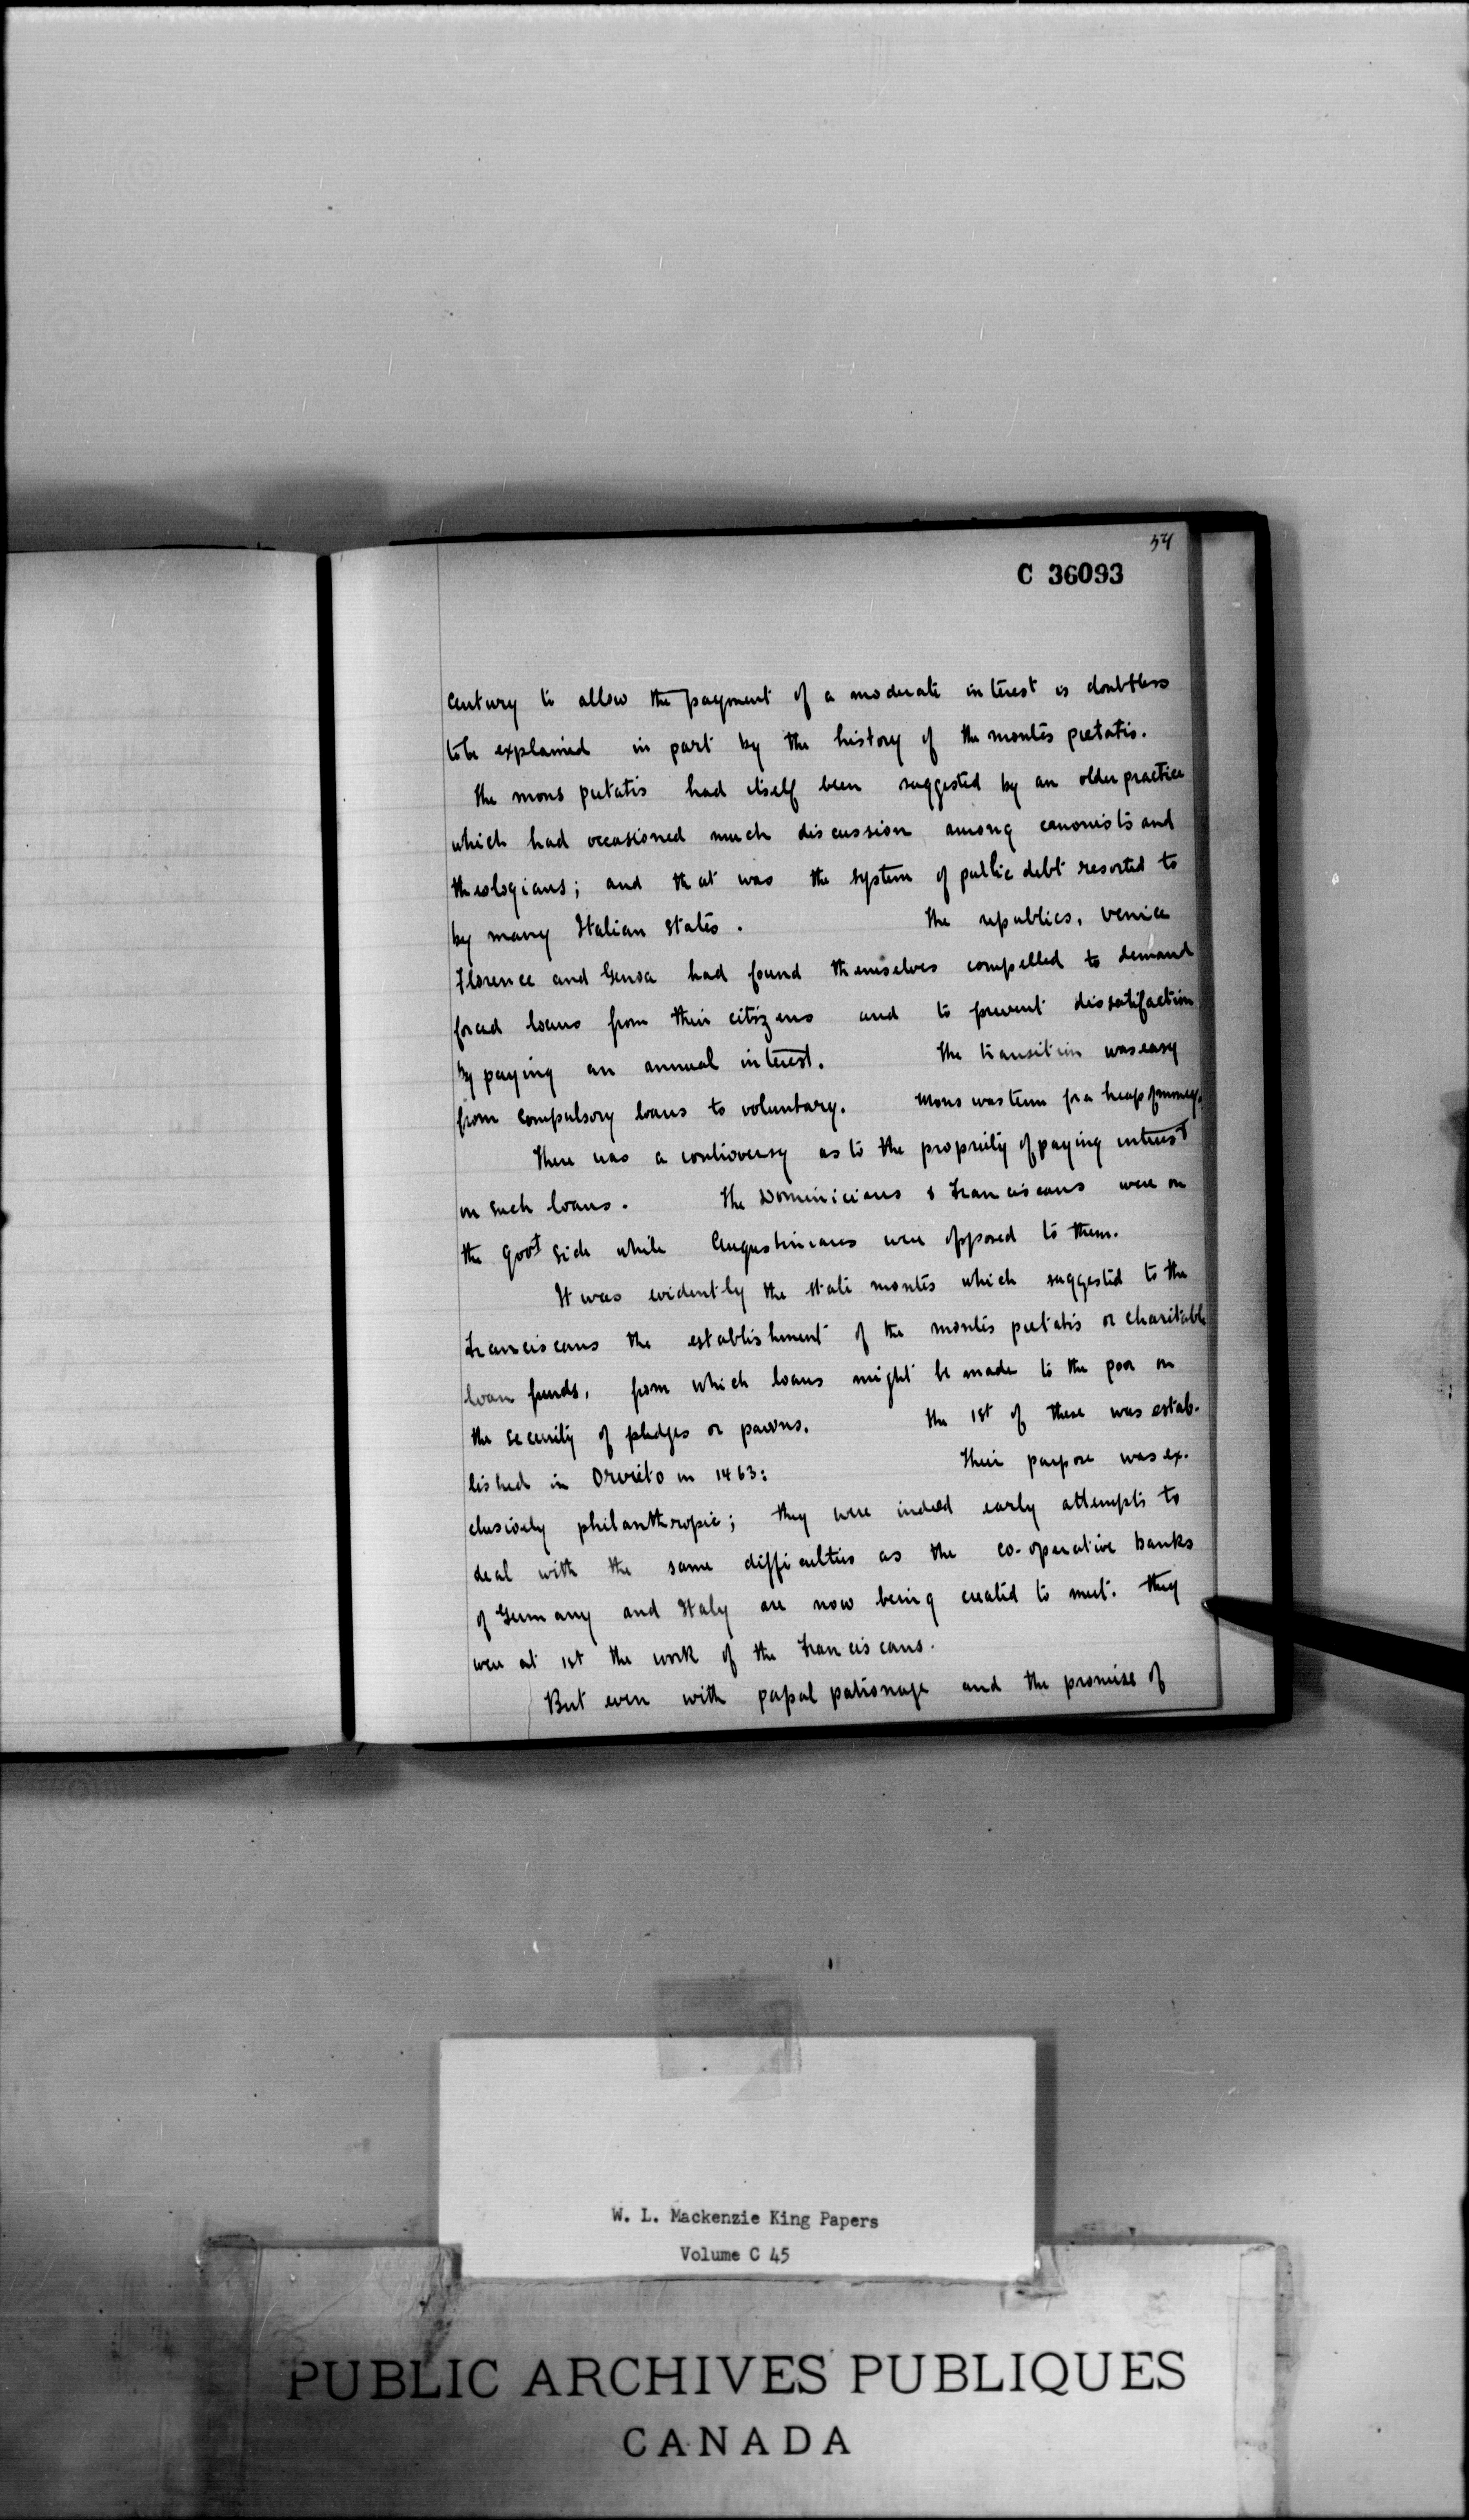 54
C 36093
century to allow the payment of a moderate interest is doubtless
to be explained in part by the history of the montes pietatis.
The mons pietatis had itself been suggested by an older practice
which had occasioned much discussion among canonists and
theologians; and that was the system of public debt resorted to
by many Italian states. The republics, Venice
Florence and Genoa had found themselves compelled to demand
forced loans from their citizens and to prevent dissatisfaction
by paying an annual interest. The transition was easy
from compulsory loans to voluntary. Mons was term for a heap of money.
There was a controversy as to the propriety of paying interest
on such loans. The Dominicians & Franciscans were on
the Govt side while Augustinians were opposed to them.
It was evidently the state montes which suggested to the
Franciscans the establishment of the montes pietatis or charitable
loan funds, from which loans might be made to the poor on
the security of pledges or pawns. The 1st of these was estab-
lished in Orvieto in 1463: Their purpose was ex-
clusively philanthropic; they were indeed early attempts to
deal with the same difficulties as the co-operative banks
of Germany and Italy are now being created to meet. They
were at 1st the work of the Franciscans.
But even with papal patronage and the promise of
W. L. Mackenzie King Papers
Volume C 45
PUBLIC ARCHIVES PUBLIQUES
CANADA